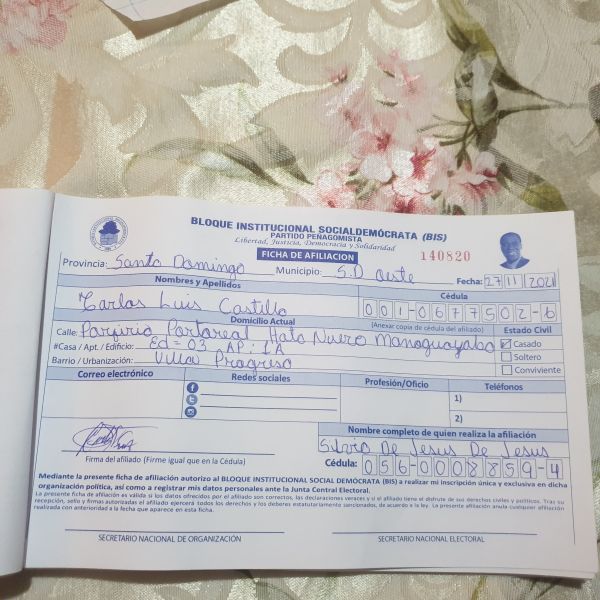 BLOQUE INSTITUCIONAL SOCIALDEMÓCRATA (BIS)
PARTIDO PEÑAGOMISTA
Libertad, Justicia, Democracia y Solidaridad
FICHA DE AFILIACION
140820
Provincia: Santo Domingo Municipio: S.D oeste Fecha: 27 11 2021
Nombres y Apellidos Cédula
Carlos Luis Castillo 001-0677502-6
Domicilio Actual (Anexar copia de cédula del afiliado) Estado Civil
Calle: Porfirio Portareal Hato Nuevo Manoguayabo Casado
#Casa / Apt. / Edificio: Ed = 03 AP: 1A Soltero
Barrio / Urbanización: Villas Progreso Conviviente
Correo electrónico Redes sociales Profesión/Oficio Teléfonos
1)
2)
Nombre completo de quien realiza la afiliación
Silvio De Jesus De Jesus
Firma del afiliado (Firme igual que en la Cédula) Cédula: 056-0008859-4
Mediante la presente ficha de afiliación autorizo al BLOQUE INSTITUCIONAL SOCIAL DEMÓCRATA (BIS) a realizar mi inscripción única y exclusiva en dicha
organización política, así como a registrar mis datos personales ante la Junta Central Electoral.
La presente ficha de afiliación es válida si los datos ofrecidos por el afiliado son correctos, las declaraciones veraces y si el afiliado tiene el disfrute de sus derechos civiles y políticos. Tras su
recepción, sello y firmas autorizadas el afiliado ejercerá todos los derechos y los deberes estatutariamente sancionados, de acuerdo a la ley. La presente afiliación anula cualquier afiliación
realizada con anterioridad a la fecha que aparece en esta ficha.
SECRETARIO NACIONAL DE ORGANIZACIÓN SECRETARIO NACIONAL ELECTORAL